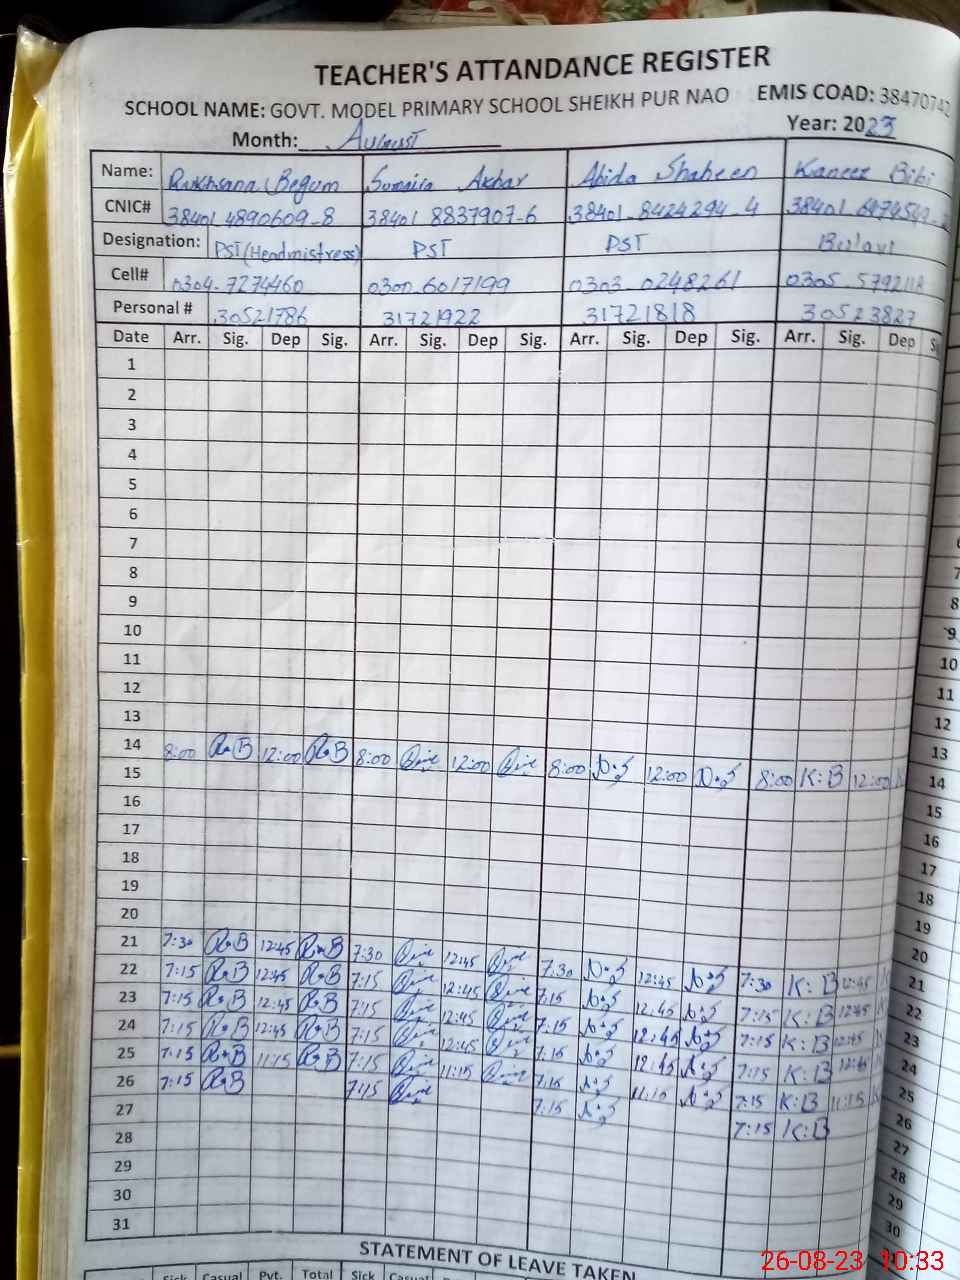 TEACHER'S ATTANDANCE REGISTER
SCHOOL NAME: GOVT. MODEL PRIMARY SCHOOL SHEIKH PUR NAO EMIS COAD: 38470742
Month: August Year: 2023
Name: Rukhsana Begum Sumaira Akhar Abida Shaheen Kaneez Bibi
CNIC# 38401-4890609-8 38401 8837907-6 38401-8424294-4 38401
Designation: PST(Headmistress) PST PST
Cell# 0304-7274460 0300-6017199 0303-0248261 0305
Personal # 30521786 31721922 31721818 30523827
Date Arr. Sig. Dep Sig. Arr. Sig. Dep Sig. Arr. Sig. Dep Sig. Arr. Sig. Dep
1
2
3
4
5
6
7
8
9
10
11
12
13
14 8:00 R.B 12:00 R.B 8:00 12:00 8:00 12:00 8:00 K:B 12:00
15
16
17
18
19
20
21 7:30 R.B 12:45 R.B 7:30 12:45 7:30 12:45 7:30 K:B 12:45
22 7:15 R.B 12:45 R.B 7:15 12:45 7:15 12:45 7:15 K:B 12:45
23 7:15 R.B 12:45 R.B 7:15 12:45 7:15 12:45 7:15 K:B 12:45
24 7:15 R.B 12:45 R.B 7:15 12:45 7:15 12:45 7:15 K:B 12:45
25 7:15 R.B 11:15 R.B 7:15 11:15 7:15 11:15 7:15 K:B 11:15
26 7:15 R.B 7:15 7:15 7:15 K:B
27
28
29
30
31
STATEMENT OF LEAVE TAKEN
Sick Casual Pvt. Total Sick
6
7
8
9
10
11
12
13
14
15
16
17
18
19
20
21
22
23
24
25
26
27
28
29
30
26-08-23 10:33